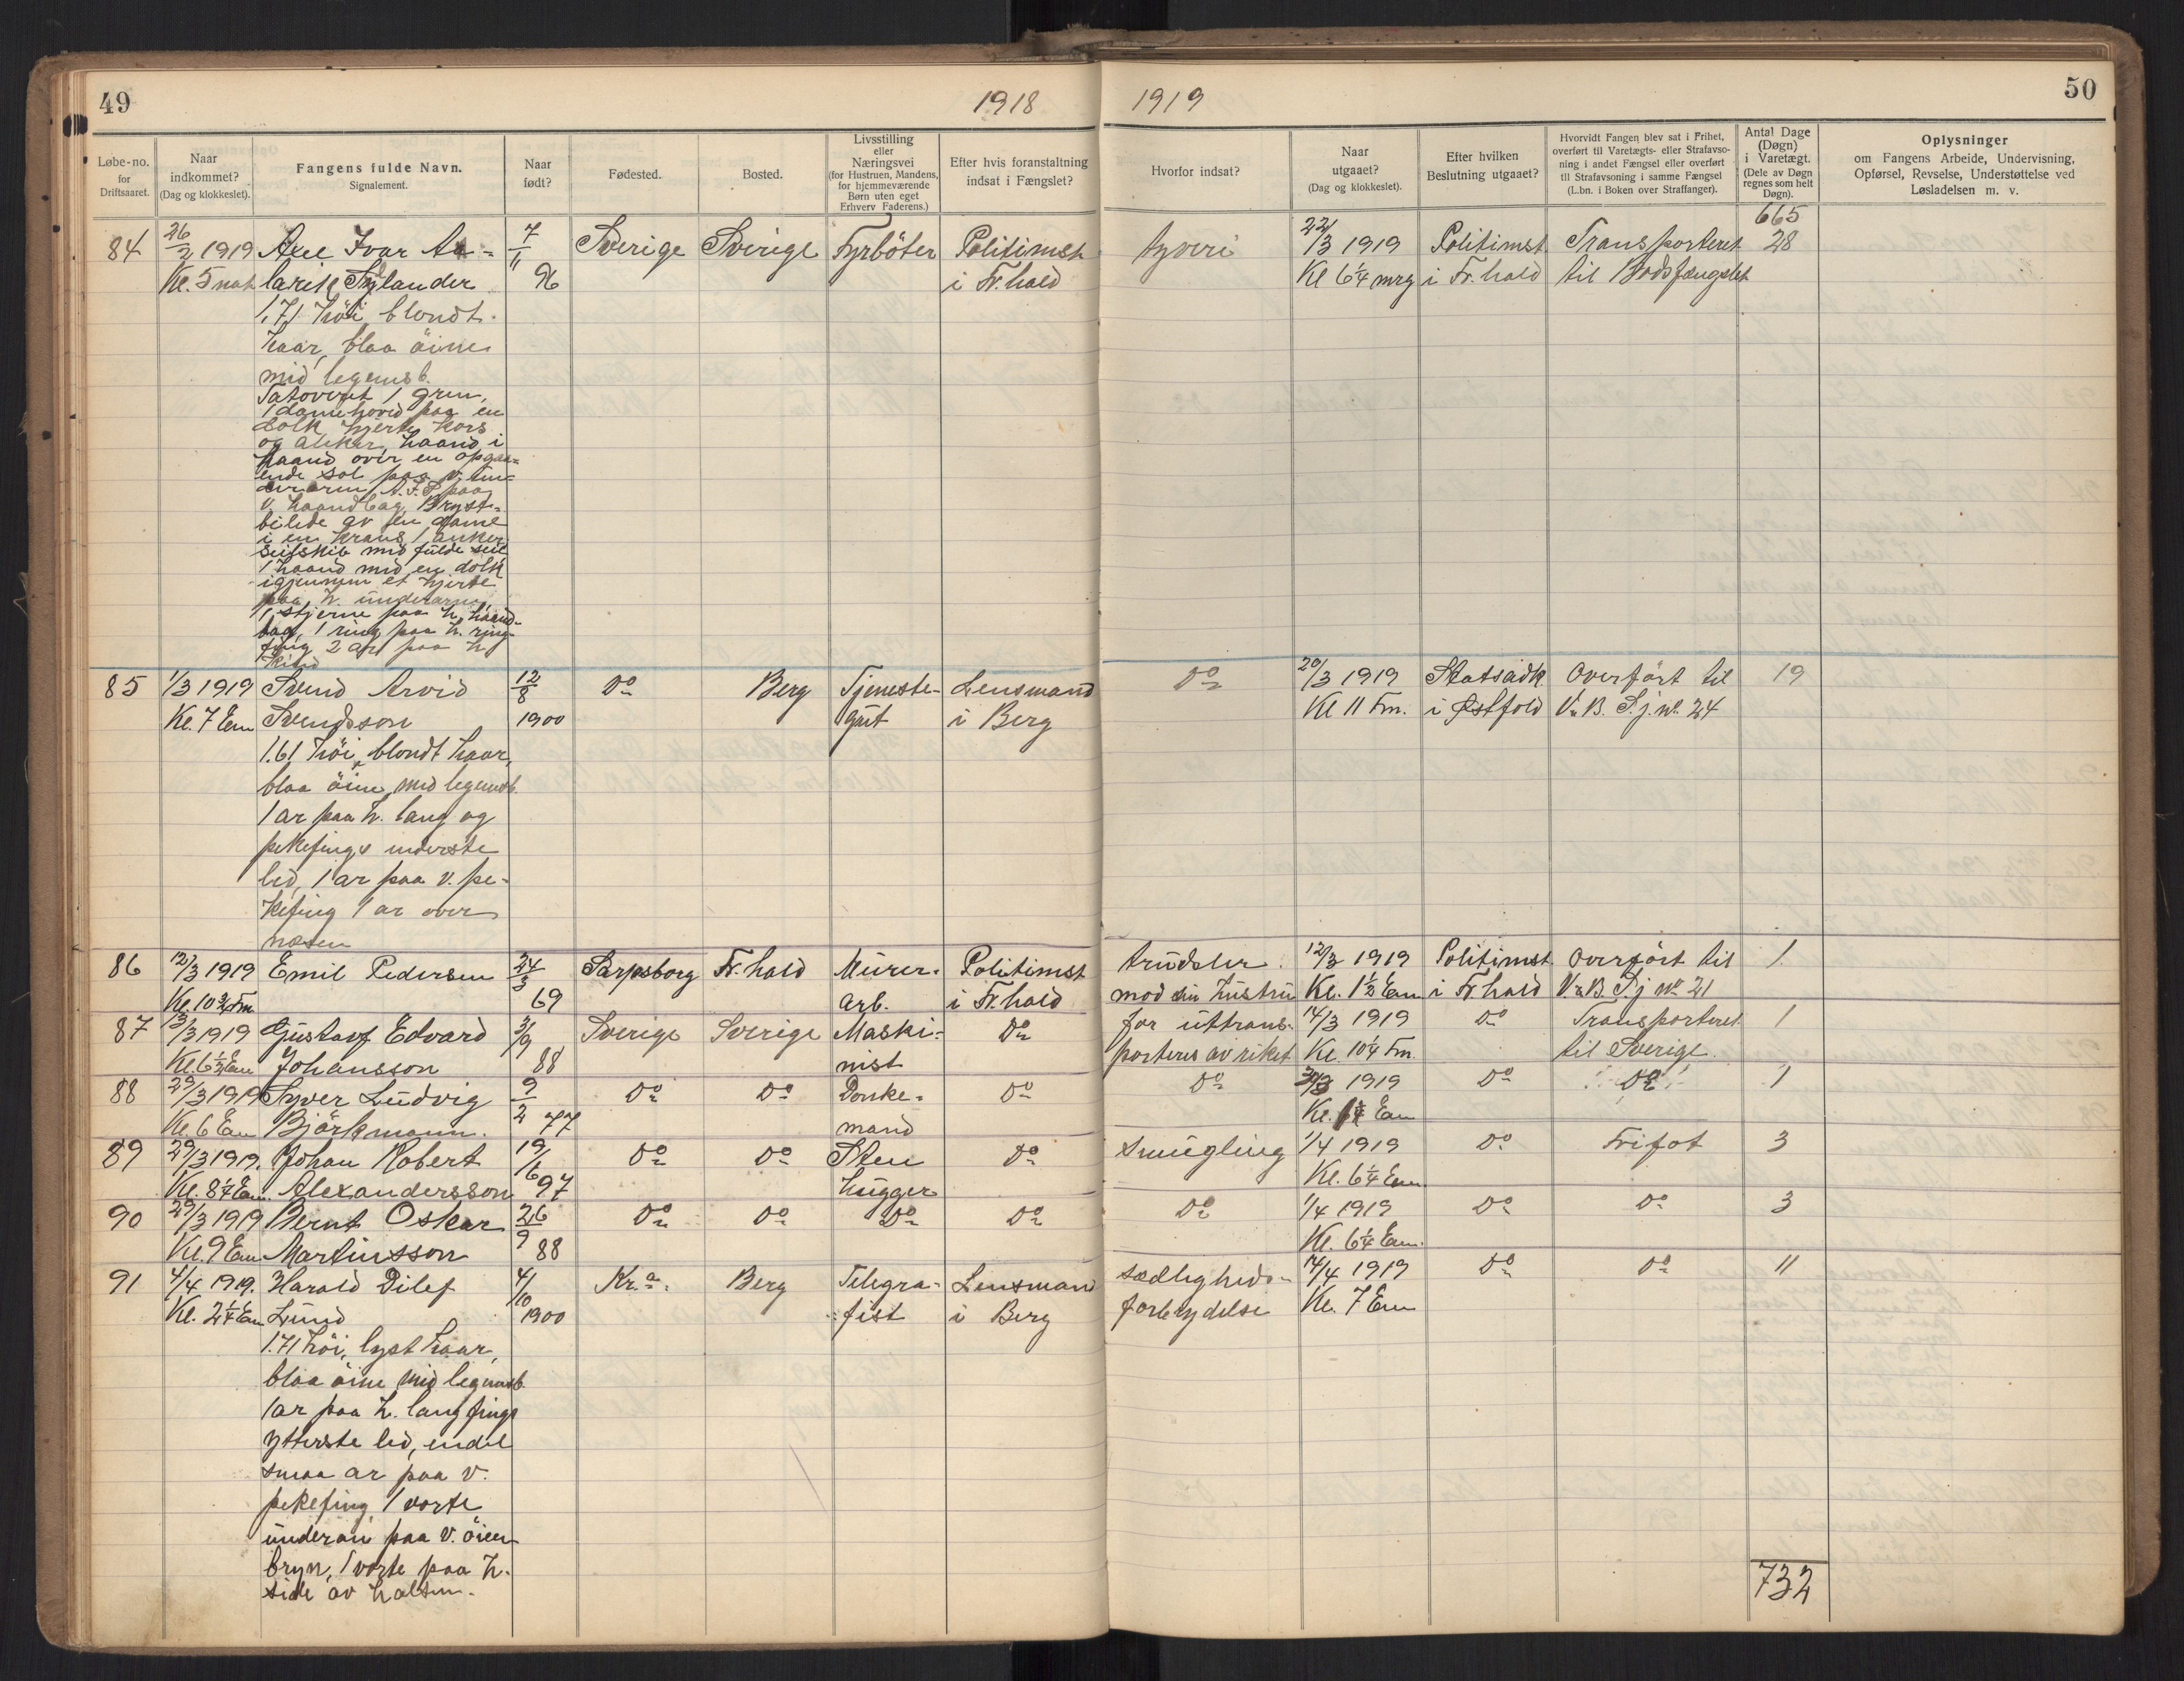 49
1918
1919
50
Løbe-no. for Driftsaaret.
Naar indkommet? (Dag og klokkeslet).
Fangens fulde Navn. Signalement.
Naar født?
Fødested.
Bosted.
Livsstilling eller Næringsvei (for Hustruen, Mandens, for hjemmeværende Børn uten eget Erhverv Faderens.)
Efter hvis foranstaltning indsat i Fængslet?
Hvorfor indsat?
Naar utgaaet? (Dag og klokkeslet).
Efter hvilken Beslutning utgaaet?
Hvorvidt Fangen blev sat i Frihet, overført til Varetægts- eller Strafavsoning i andet Fængsel eller overført til Strafavsoning i samme Fængsel (L.bn. i Boken over Straffanger).
Antal Dage (Døgn) i Varetægt. (Dele av Døgn regnes som helt Døgn).
Oplysninger om Fangens Arbeide, Undervisning, Opførsel, Revselse, Understøttelse ved Løsladelsen m. v.
665
84 26/2 1919 Axel Ivar 7/11 Sverige Sverige Fyrböter Politimst. tyveri 22/3 1919 Politimst. Transporteret 28
Kl. 5 nat. 96 i Fr.hald Kl 6 1/4 mrg i Fr.hald til Bodsfængslet
1,71 höi, blondt
haar, blaa öine
mid legemsb.
Tatoveret 1 gren,
1 damehoved paa en
dolk hjerte kors
og anker haand i
haand over en opgaa-
ende sol paa v. un-
derarm paa
v. haandbag Bryst-
bilede av en dame
i en krans 1 anker
seilskib med fulde seil
1 haand med en dolk
igjennem et hjerte
paa h. underarm
1 stjerne paa h. haand-
bag, 1 ring paa h. ring-
fing 2 ar paa h.
kind
85 1/3 1919 Svend Arvid 12/8 Do Berg Tjeneste- Lensmand Do 20/3 1919 Statsadk. Overfört til 19
Kl. 7 Em Svendsson 1900 gut i Berg Kl 11 Fm. i Østfold V. B. S.j. no. 24
1.61 höi, blondt haar,
blaa öine, mid legemsb.
1 ar paa h. lang og
pekefings underste
led, 1 ar paa v. pe-
kefing 1 ar over
næsen
86 12/3 1919 Emil Pedersen 24/3 Sarpsborg Fr.hald Murer- Politimst trudsler 12/3 1919 Politimst. Overfört til 1
Kl. 10 3/4 Fm 69 arb. i Fr.hald mod sin hustru Kl. 1 1/2 Em i Fr.hald V. B. S.j no 21
87 13/3 1919 Gustav Edvard 3/9 Sverige Sverige Maski- Do for uttrans- 14/3 1919 Do Transporteret 1
Kl. 6 1/2 Em Johansson 88 nist porteres av riket Kl. 10 1/4 Fm. til Sverige.
88 29/3 1919 Syver Ludvig 9/2 Do Do Donke- Do Do 30/3 1919 Do Do 1
Kl. 6 Em Björkmann. 77 mand Kl. Em
89 29/3 1919. Johan Robert 19/6 Do Do Sten Do smugling 1/4 1919 Do Frifot 3
Kl. 8 1/4 Em. Alexandersson 97 hugger Kl. 6 1/4 Em
90 29/3 1919 Bernt Oskar 26/9 Do Do Do Do Do 1/4 1919 Do Do 3
Kl. 9 Em Martinsson 88 Kl. 6 1/4 Em.
91 4/4 1919. Harald Dilef 4/10 Kr.a. Berg Telegra- Lensmand sædligheds- 14/4 1919 Do Do 11
Kl. 2 1/4 Em Lund 1900 fist i Berg forbrydelse Kl. 7 Em
1.71 höi, lyst haar,
blaa öine mid legemsb.
1 ar paa h. langfings
ytterste led, endel
smaa ar paa v.
pekefing 1 vorte
underan paa v. öien
bryn, 1 vorte paa h.
side av halsen.
732